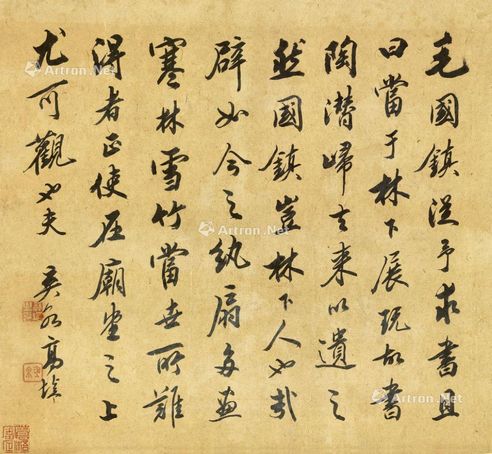 毛國鎮從予求書且
曰當于林下展玩故書
陶潛歸去來以遺之
然國鎮豈林下人也哉
辟如今之紈扇多畫
寒林雪竹當世所難
得者正使在廟堂之上
尤可觀也夫
Artron.Net
Artron.Net
Artron.Net
Artron.Net
Artron.Net